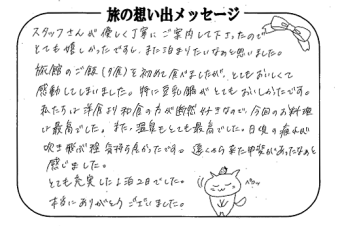 旅の想い出メッセージ
スタッフさんが優しく丁寧にご案内して下さったので
とても嬉しかったですし、また泊まりたいなぁと思いました。
旅館のご飯(夕食)を初めて食べましたが、とてもおいしくて
感動してしまいました。特に豆乳鍋がとてもおいしかったです。
私たちは洋食より和食の方が断然好きなので、今回のお料理
は最高でした。また、温泉もとても最高でした。日頃の疲れが
吹き飛ぶ程気持ち良かったです。遠くから来た甲斐があったなぁと
感じました。
とても充実した1泊2日でした。
本当にありがとうございました。